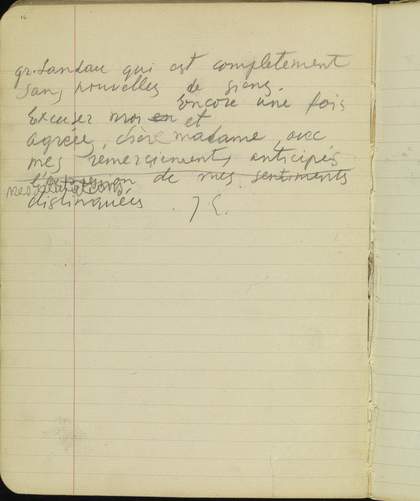 gr. Landau qui est completement
sans nouvelles de siens.
Encore une fois
Excuser moi en et
agréer, chère madame, avec
mes remerciements anticipés
l'expression de mes sentiments
mes salutations
distinguées J C.